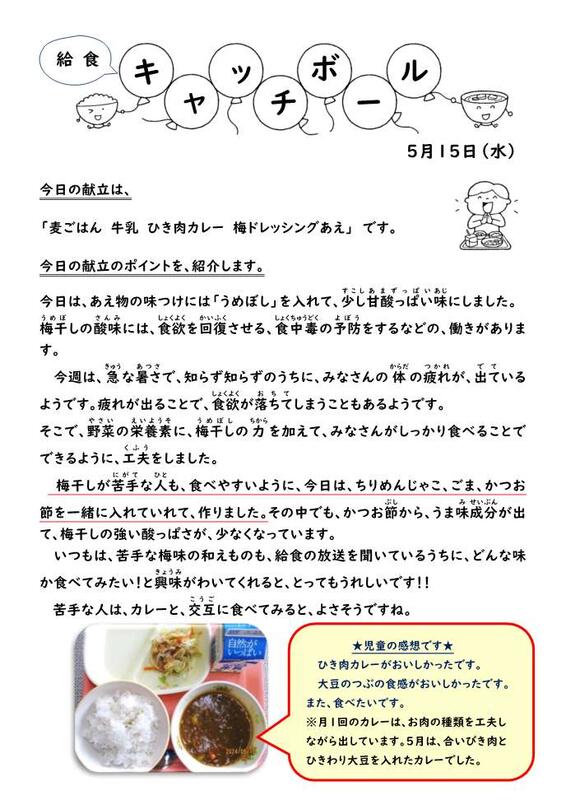 給食
キャッチボール
5月15日(水)
今日の献立は、
「麦ごはん 牛乳 ひき肉カレー 梅ドレッシングあえ」 です。
今日の献立のポイントを、紹介します。
今日は、あえ物の味つけには「うめぼし」を入れて、少し甘酸っぱい味にしました。
梅干しの酸味には、食欲を回復させる、食中毒の予防をするなどの、働きがありま
す。
今週は、急な暑さで、知らず知らずのうちに、みなさんの体の疲れが、出ている
ようです。疲れが出ることで、食欲が落ちてしまうこともあるようです。
そこで、野菜の栄養素に、梅干しの力を加えて、みなさんがしっかり食べることで
できるように、工夫をしました。
梅干しが苦手な人も、食べやすいように、今日は、ちりめんじゃこ、ごま、かつお
節を一緒に入れていれて、作りました。その中でも、かつお節から、うま味成分が出
て、梅干しの強い酸っぱさが、少なくなっています。
いつもは、苦手な梅味の和えものも、給食の放送を聞いているうちに、どんな味
か食べてみたい!と興味がわいてくれると、とってもうれしいです!!
苦手な人は、カレーと、交互に食べてみると、よさそうですね。
自然が
いっぱい
★児童の感想です★
ひき肉カレーがおいしかったです。
大豆のつぶの食感がおいしかったです。
また、食べたいです。
※月1回のカレーは、お肉の種類を工夫し
ながら出しています。5月は、合いびき肉と
ひきわり大豆を入れたカレーでした。